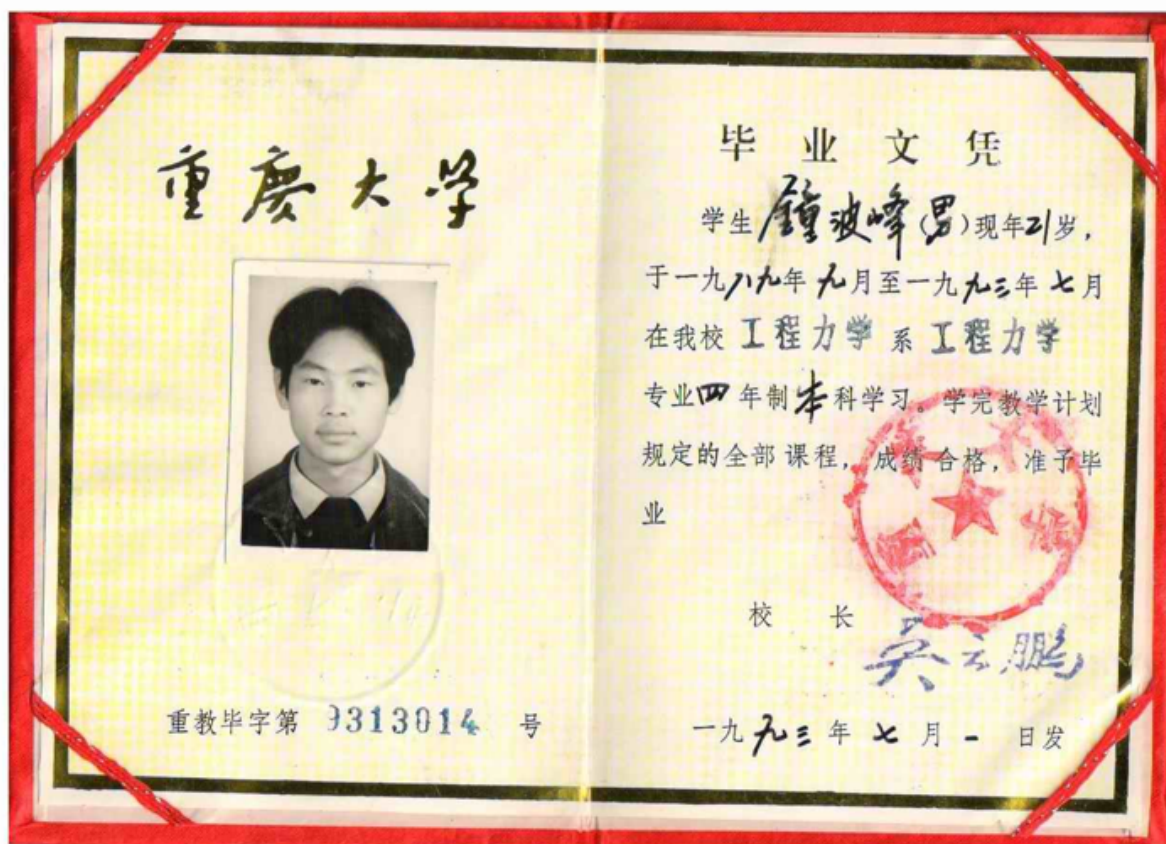 重慶大学
重教毕字第 9313014 号
毕业文凭
学生鍾波峰(男)现年21岁,
于一九八九年九月至一九九三年七月
在我校 工程力学 系 工程力学
专业四年制本科学习。学完教学计划
规定的全部课程,成绩合格,准予毕
业
校 长
吴云鹏
一九九三年七月一日发